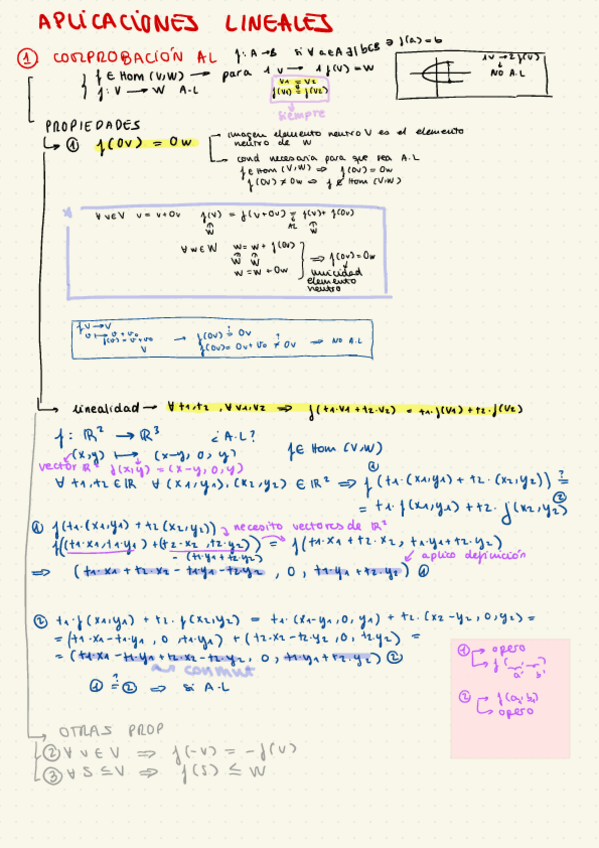 APLICACIONES LINEALES
① COMPROBACIÓN AL f: A→B si ∀ a∈A ∃! b∈B ∋ f(a) = b
f ∈ Hom (V,W) → para 1 v → 1 f(v) = w
f: V → W A.L
v1 = v2
f(v1) = f(v2)
siempre
1v → 2 f(v)
NO A.L
PROPIEDADES
① f(0v) = 0w
imagen elemento neutro V es el elemento neutro de W
cond necesaria para que sea A.L
f ∈ Hom (V,W) ⇒ f(0v) = 0w
f(0v) ≠ 0w ⇒ f ∉ Hom (V,W)
∀ v∈V v = v+0v f(v) = f(v+0v) = f(v) + f(0v)
W AL W
∀ w∈W w = w + f(0v)
W W
w = w + 0w
⇒ f(0v) = 0w
unicidad elemento neutro
f: V → V
v → v + v0
f(0v) = 0v + v0
V
→ f(0v) = 0v
f(0v) = 0v + v0 ≠ 0v ⇒ NO A.L
linealidad → ∀ t1,t2 , ∀ v1,v2 ⇒ f(t1·v1 + t2·v2) = t1·f(v1) + t2·f(v2)
f: ℝ² → ℝ³ ¿A.L? f ∈ Hom (V,W)
(x,y) ↦ (x-y, 0, y)
vector ℝ² f(x,y) = (x-y, 0, y)
∀ t1,t2 ∈ ℝ ∀ (x1,y1), (x2,y2) ∈ ℝ² ⇒ f(t1·(x1,y1) + t2·(x2,y2)) ?=
= t1·f(x1,y1) + t2·f(x2,y2) ②
① f(t1·(x1,y1) + t2(x2,y2)) necesito vectores de ℝ²
f((t1·x1, t1·y1) + (t2·x2, t2·y2)) = f(t1·x1 + t2·x2, t1·y1 + t2·y2)
- (t1y1 + t2y2) aplico definición
⇒ (t1·x1 + t2·x2 - t1y1 - t2y2 , 0, t1y1 + t2y2) ①
② t1·f(x1,y1) + t2·f(x2,y2) = t1·(x1-y1, 0, y1) + t2·(x2-y2, 0, y2) =
= (t1·x1 - t1y1, 0, t1y1) + (t2·x2 - t2·y2, 0, t2y2) =
= (t1·x1 - t1·y1 + t2·x2 - t2·y2, 0, t1·y1 + t2·y2) ②
conmut
① ?= ② ⇒ si A.L
① → opero
→ f(
a b
② → f(a,b)
→ opero
OTRAS PROP
② ∀ v ∈ V ⇒ f(-v) = -f(v)
③ ∀ S ≤ V ⇒ f(S) ≤ W